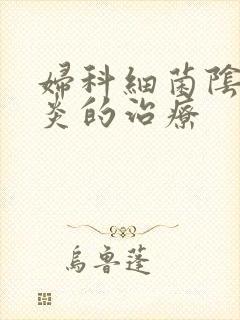 婦科細菌陰
炎的治療
烏魯蓬